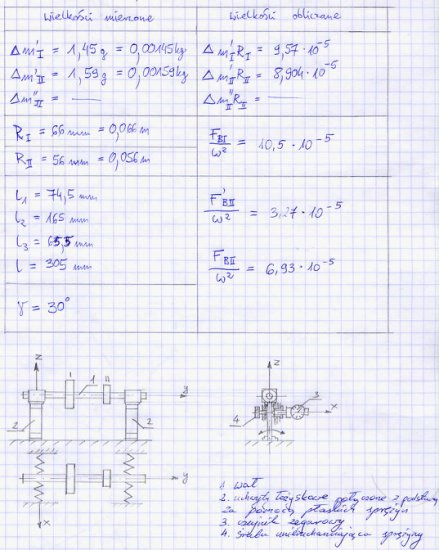 wielkości mierzone
wielkości obliczane
Δm'I = 1,45g = 0,00145kg
Δm'II = 1,59g = 0,00159kg
Δm''II = —
Δm'I RI = 9,57·10⁻⁵
Δm'II RII = 8,904·10⁻⁵
Δm''II RII = —
RI = 66mm = 0,066m
RII = 56mm = 0,056m
FBI/ω² = 10,5·10⁻⁵
l1 = 74,5 mm
l2 = 165 mm
l3 = 65,5 mm
l = 305 mm
F'BII/ω² = 3,27·10⁻⁵
FBII/ω² = 6,93·10⁻⁵
γ = 30°
z
I
1
II
2
2
y
x
z
3
4
x
1 wał
2. uchwyty łożyskowe połączone z podstawą
za pomocą płaskich sprężyn
3. czujnik zegarowy
4. śruba unieruchamiająca sprężyny